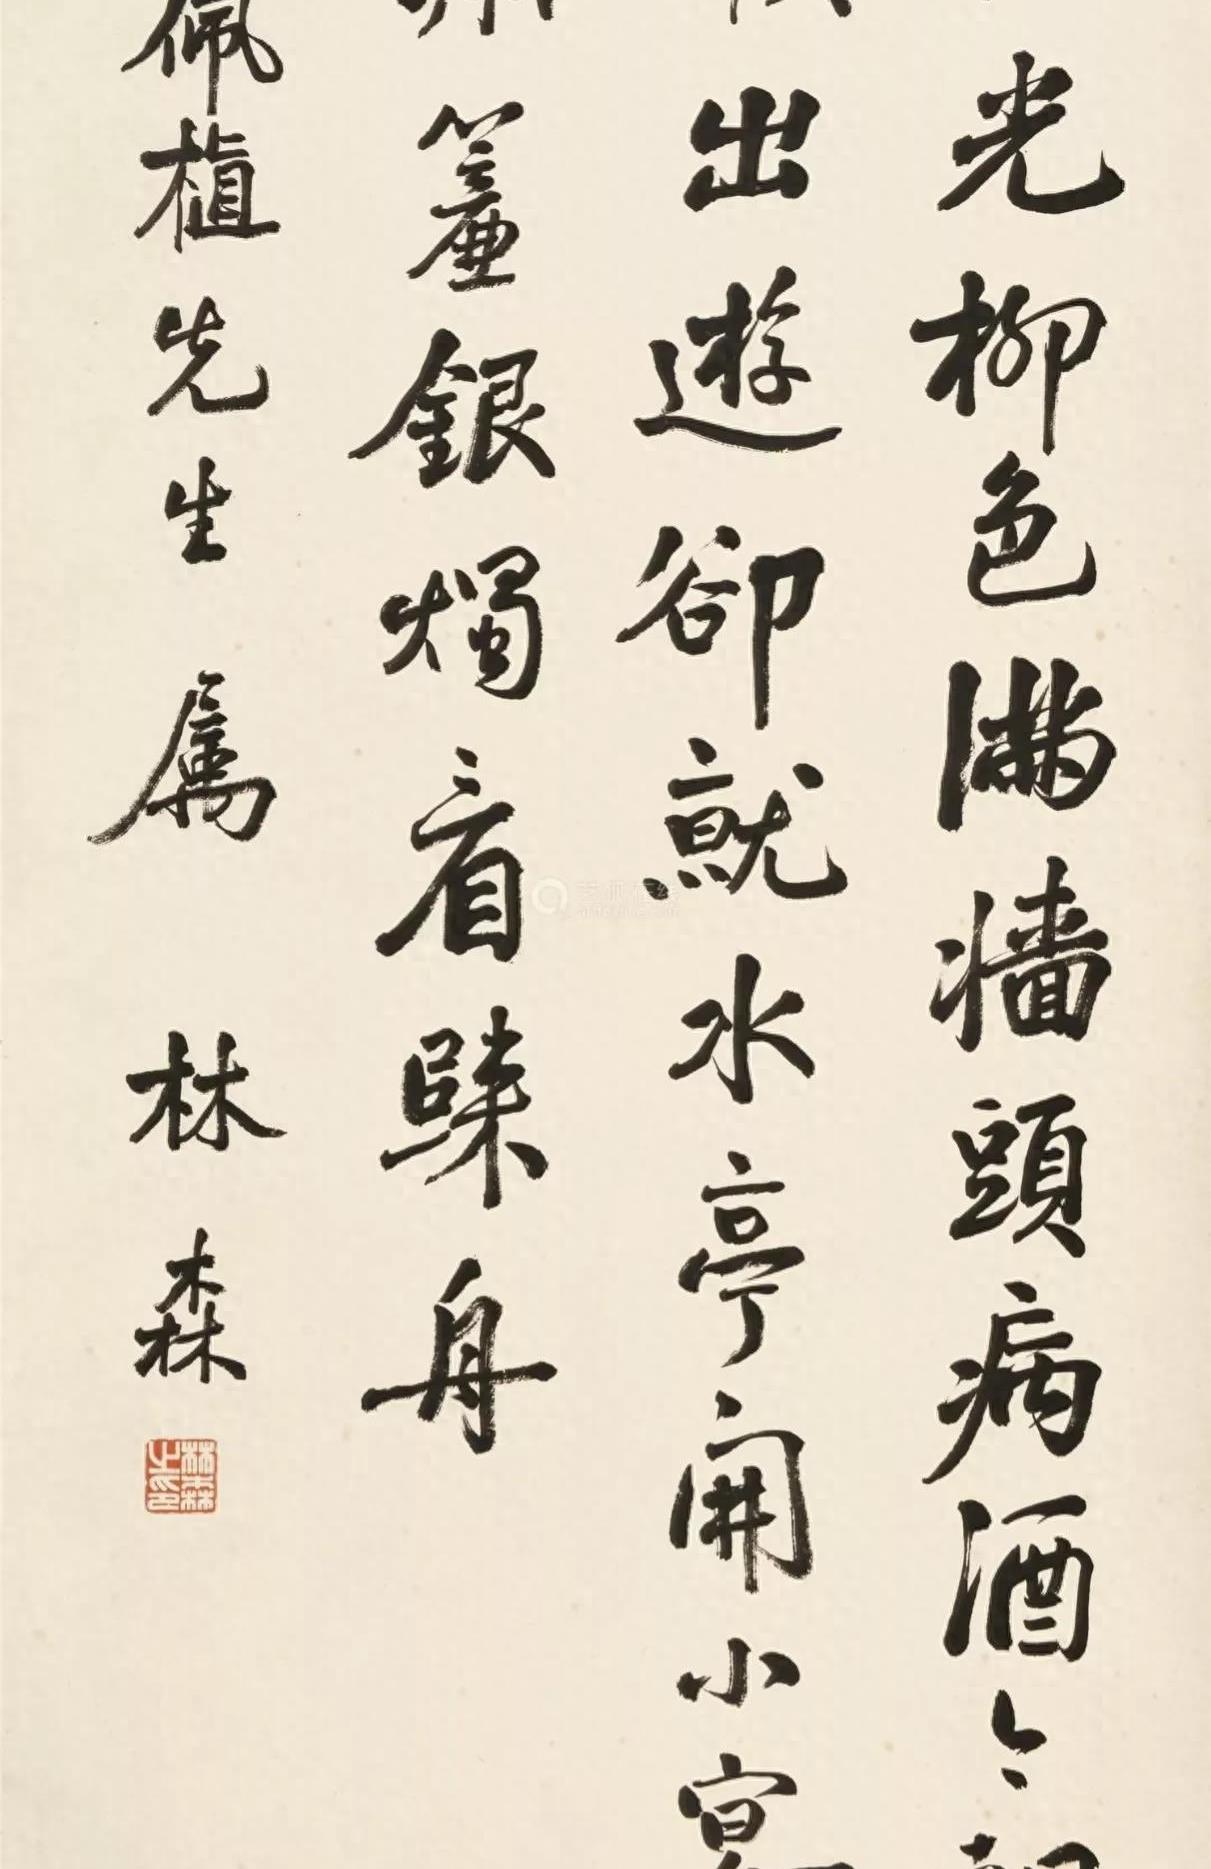 光柳色滿牆頭病酒今朝
出遊卻就水亭開小宴
簾銀燭看歸舟
佩植先生属 林森
林森之印